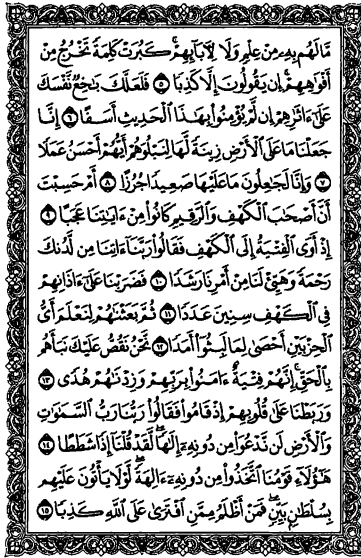 مَّا لَهُم بِهِۦ مِنْ عِلْمٍ وَلَا لِـَٔابَآئِهِمْ ۚ كَبُرَتْ كَلِمَةً تَخْرُجُ مِنْ
أَفْوَٰهِهِمْ ۚ إِن يَقُولُونَ إِلَّا كَذِبًا ٥ فَلَعَلَّكَ بَٰخِعٌ نَّفْسَكَ
عَلَىٰٓ ءَاثَٰرِهِمْ إِن لَّمْ يُؤْمِنُوا۟ بِهَٰذَا ٱلْحَدِيثِ أَسَفًا ٦ إِنَّا
جَعَلْنَا مَا عَلَى ٱلْأَرْضِ زِينَةً لَّهَا لِنَبْلُوَهُمْ أَيُّهُمْ أَحْسَنُ عَمَلًا
٧ وَإِنَّا لَجَٰعِلُونَ مَا عَلَيْهَا صَعِيدًا جُرُزًا ٨ أَمْ حَسِبْتَ
أَنَّ أَصْحَٰبَ ٱلْكَهْفِ وَٱلرَّقِيمِ كَانُوا۟ مِنْ ءَايَٰتِنَا عَجَبًا ٩
إِذْ أَوَى ٱلْفِتْيَةُ إِلَى ٱلْكَهْفِ فَقَالُوا۟ رَبَّنَآ ءَاتِنَا مِن لَّدُنكَ
رَحْمَةً وَهَيِّئْ لَنَا مِنْ أَمْرِنَا رَشَدًا ١٠ فَضَرَبْنَا عَلَىٰٓ ءَاذَانِهِمْ
فِى ٱلْكَهْفِ سِنِينَ عَدَدًا ١١ ثُمَّ بَعَثْنَٰهُمْ لِنَعْلَمَ أَىُّ
ٱلْحِزْبَيْنِ أَحْصَىٰ لِمَا لَبِثُوٓا۟ أَمَدًا ١٢ نَّحْنُ نَقُصُّ عَلَيْكَ نَبَأَهُم
بِٱلْحَقِّ ۚ إِنَّهُمْ فِتْيَةٌ ءَامَنُوا۟ بِرَبِّهِمْ وَزِدْنَٰهُمْ هُدًى ١٣
وَرَبَطْنَا عَلَىٰ قُلُوبِهِمْ إِذْ قَامُوا۟ فَقَالُوا۟ رَبُّنَا رَبُّ ٱلسَّمَٰوَٰتِ
وَٱلْأَرْضِ لَن نَّدْعُوَا۟ مِن دُونِهِۦٓ إِلَٰهًا ۖ لَّقَدْ قُلْنَآ إِذًا شَطَطًا ١٤
هَٰٓؤُلَآءِ قَوْمُنَا ٱتَّخَذُوا۟ مِن دُونِهِۦٓ ءَالِهَةً ۖ لَّوْلَا يَأْتُونَ عَلَيْهِم
بِسُلْطَٰنٍۭ بَيِّنٍ ۖ فَمَنْ أَظْلَمُ مِمَّنِ ٱفْتَرَىٰ عَلَى ٱللَّهِ كَذِبًا ١٥